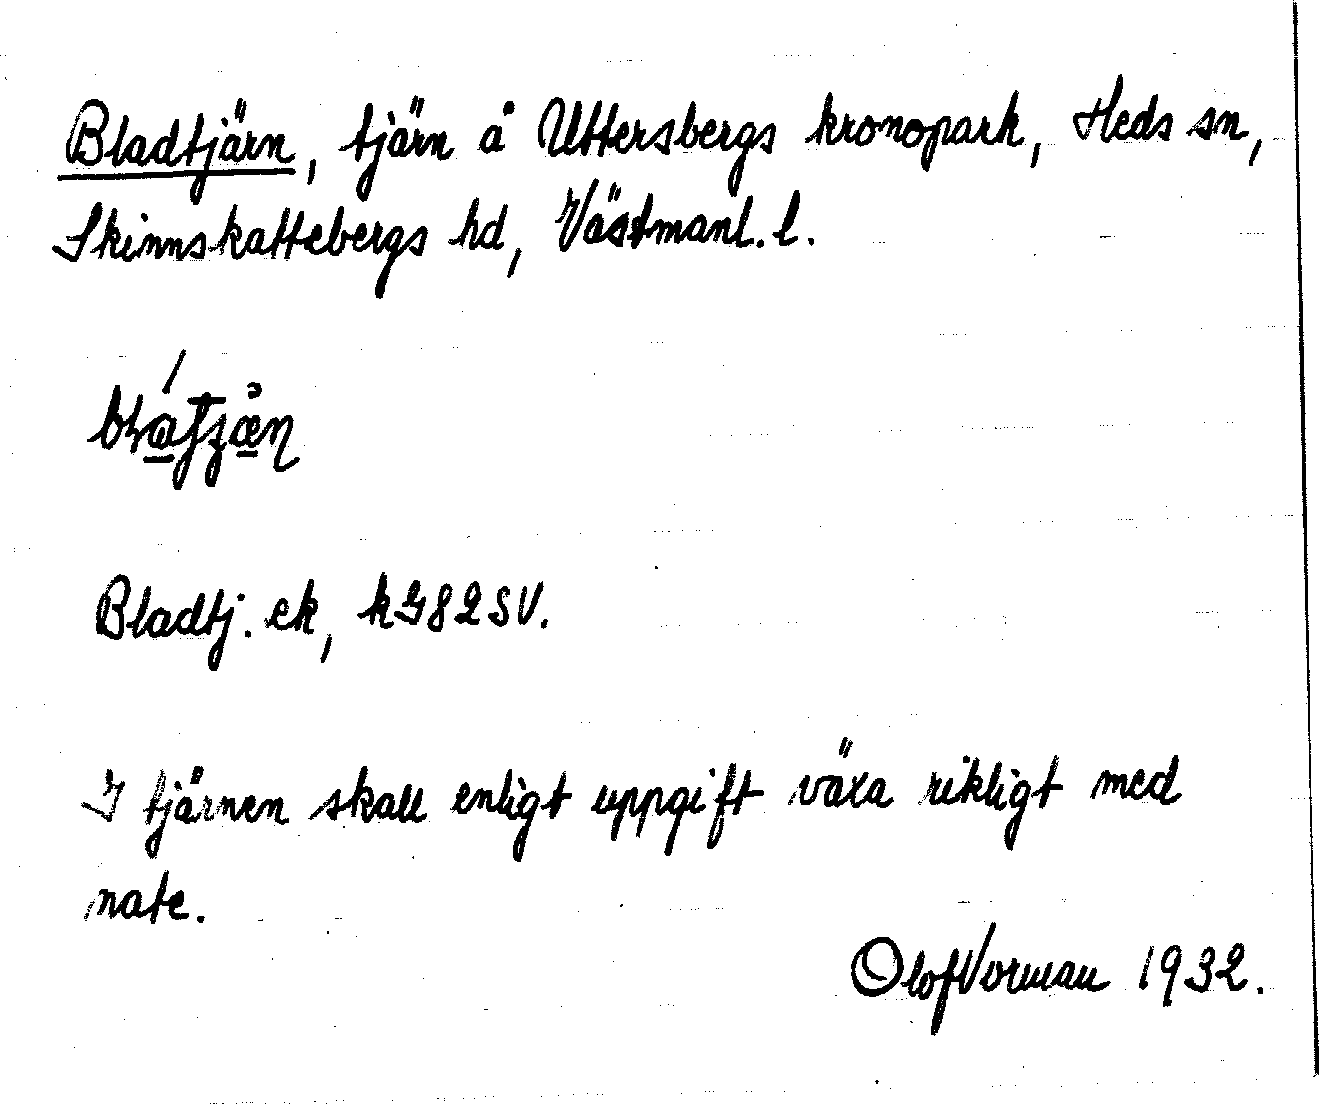 Bladtjärn, tjärn å Uttersbergs kronopark, Heds sn,
Skinnskattebergs hd, Västmanl. l.
Bladtj. ek, kG82SV.
I tjärnen skall enligt uppgift växa rikligt med
nate.
Olof Vorman 1932.